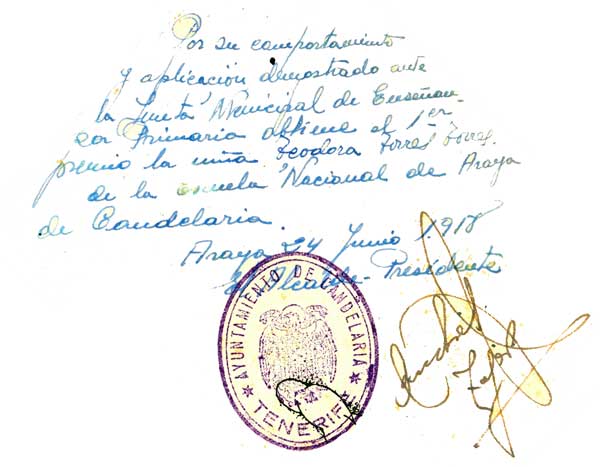 Por su comportamiento
y aplicación demostrado ante
la Junta Municipal de Enseñan-
za Primaria obtiene el 1er
premio la niña Teodora Torres Torres
de la escuela Nacional de Araya
de Candelaria.
Araya 24 Junio 1918
El Alcalde-Presidente
AYUNTAMIENTO DE CANDELARIA
TENERIFE